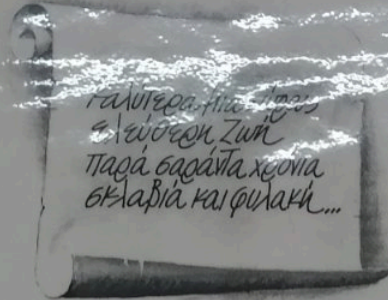 Καλύτερα μιας ώρας
ελεύθερη Ζωή
παρά σαράντα χρόνια
σκλαβιά και φυλακή...